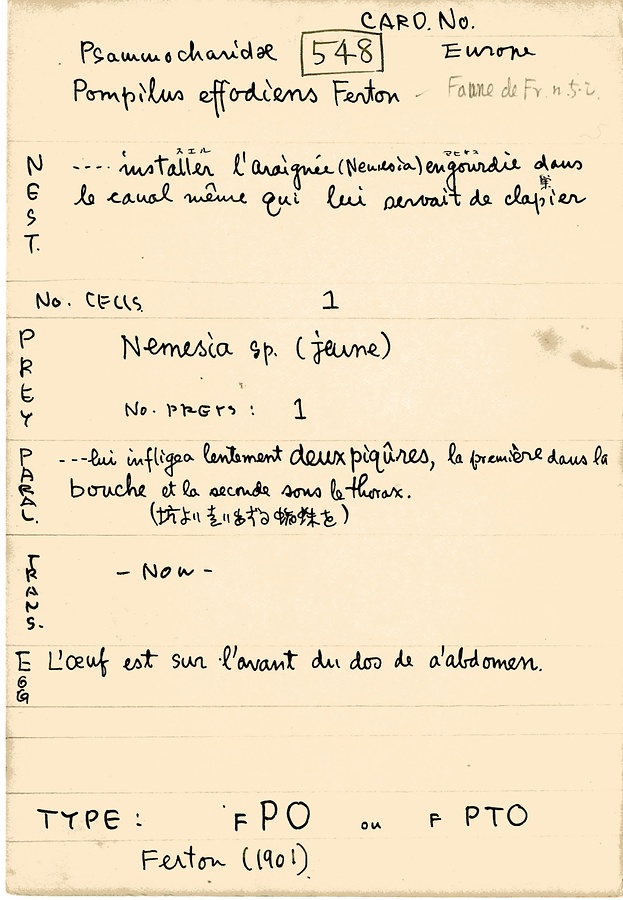 CARD. No.
Psammocharidæ 548 Europe
Pompilus effodiens Ferton - Faune de Fr. n. 5-2.
スエル マヒサス
NEST. ---- installer l'araignée (Nemesia) engourdie dans
巣
le canal même qui lui servait de clapier
No. CELLS 1
PREY Nemesia sp. (jeune)
No. PREYS : 1
PARAL. ---lui infligea lentement deux piqûres, la première dans la
bouche et la seconde sous le thorax.
(坑より 蜘蛛を)
TRANS. - Non -
EGG L'œuf est sur l'avant du dos de a'abdomen.
TYPE : F PO ou F PTO
Ferton (1901)